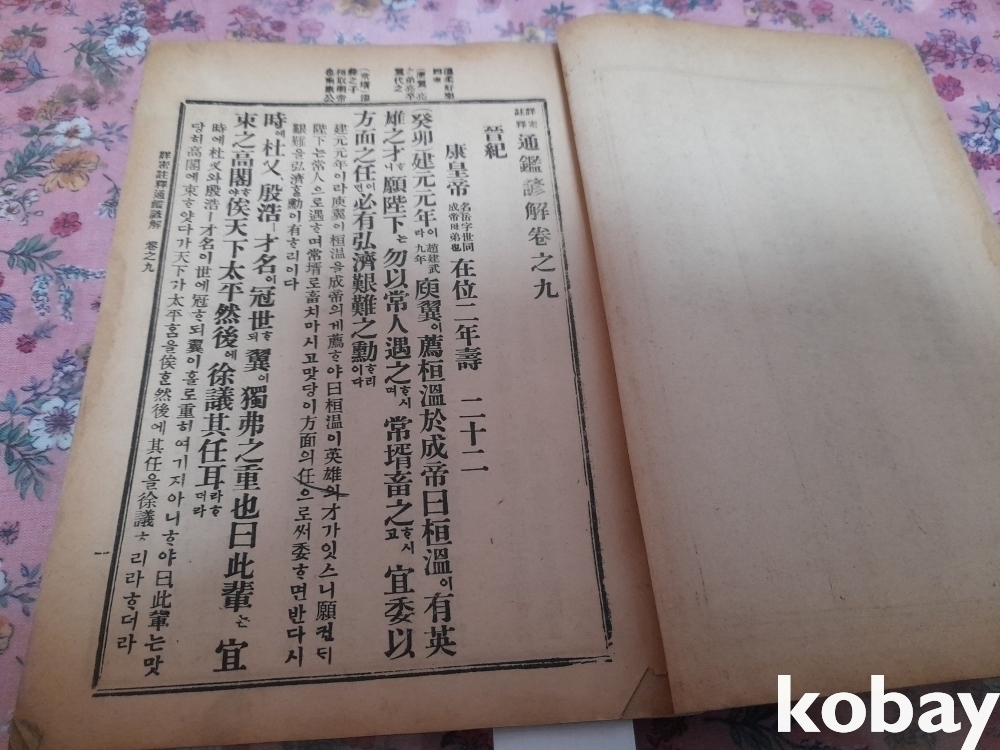 詳密註釋通鑑諺解卷之九
晉紀
康皇帝 名岳字世同成帝母弟也 在位二年壽 二十二
(癸卯)建元元年이라 趙建武九年 庾翼이薦桓溫於成帝曰桓溫이有英
雄之才니願陛下는勿以常人遇之ᄒᆞ시며常壻畜之ᄒᆞ시고宜委以
方面之任이면必有弘濟艱難之勳ᄒᆞ리이다
建元元年이라庾翼이桓溫을成帝의게薦ᄒᆞ야曰桓溫이英雄의才가잇스니願컨ᄃᆡ
陛下는常人으로遇ᄒᆞ며常壻로畜치마시고맛당이方面의任으로써委ᄒᆞ면반다시
艱難을弘濟ᄒᆞᆯ勳이有ᄒᆞ리이다
時에杜乂、殷浩ㅣ才名이冠世ᄒᆞ되翼이獨弗之重也曰此輩는宜
束之高閣ᄒᆞ야俟天下太平然後에徐議其任耳라ᄒᆞ더라
時에杜乂와殷浩ㅣ才名이世에冠ᄒᆞ되翼이홀로重히여기지아니ᄒᆞ야曰此輩는맛
당히高閣에束ᄒᆞ얏다가天下가太平홈을俟ᄒᆞᆫ然後에其任을徐議ᄒᆞ리라ᄒᆞ더라
詳密註釋通鑑諺解 卷之九
kobay